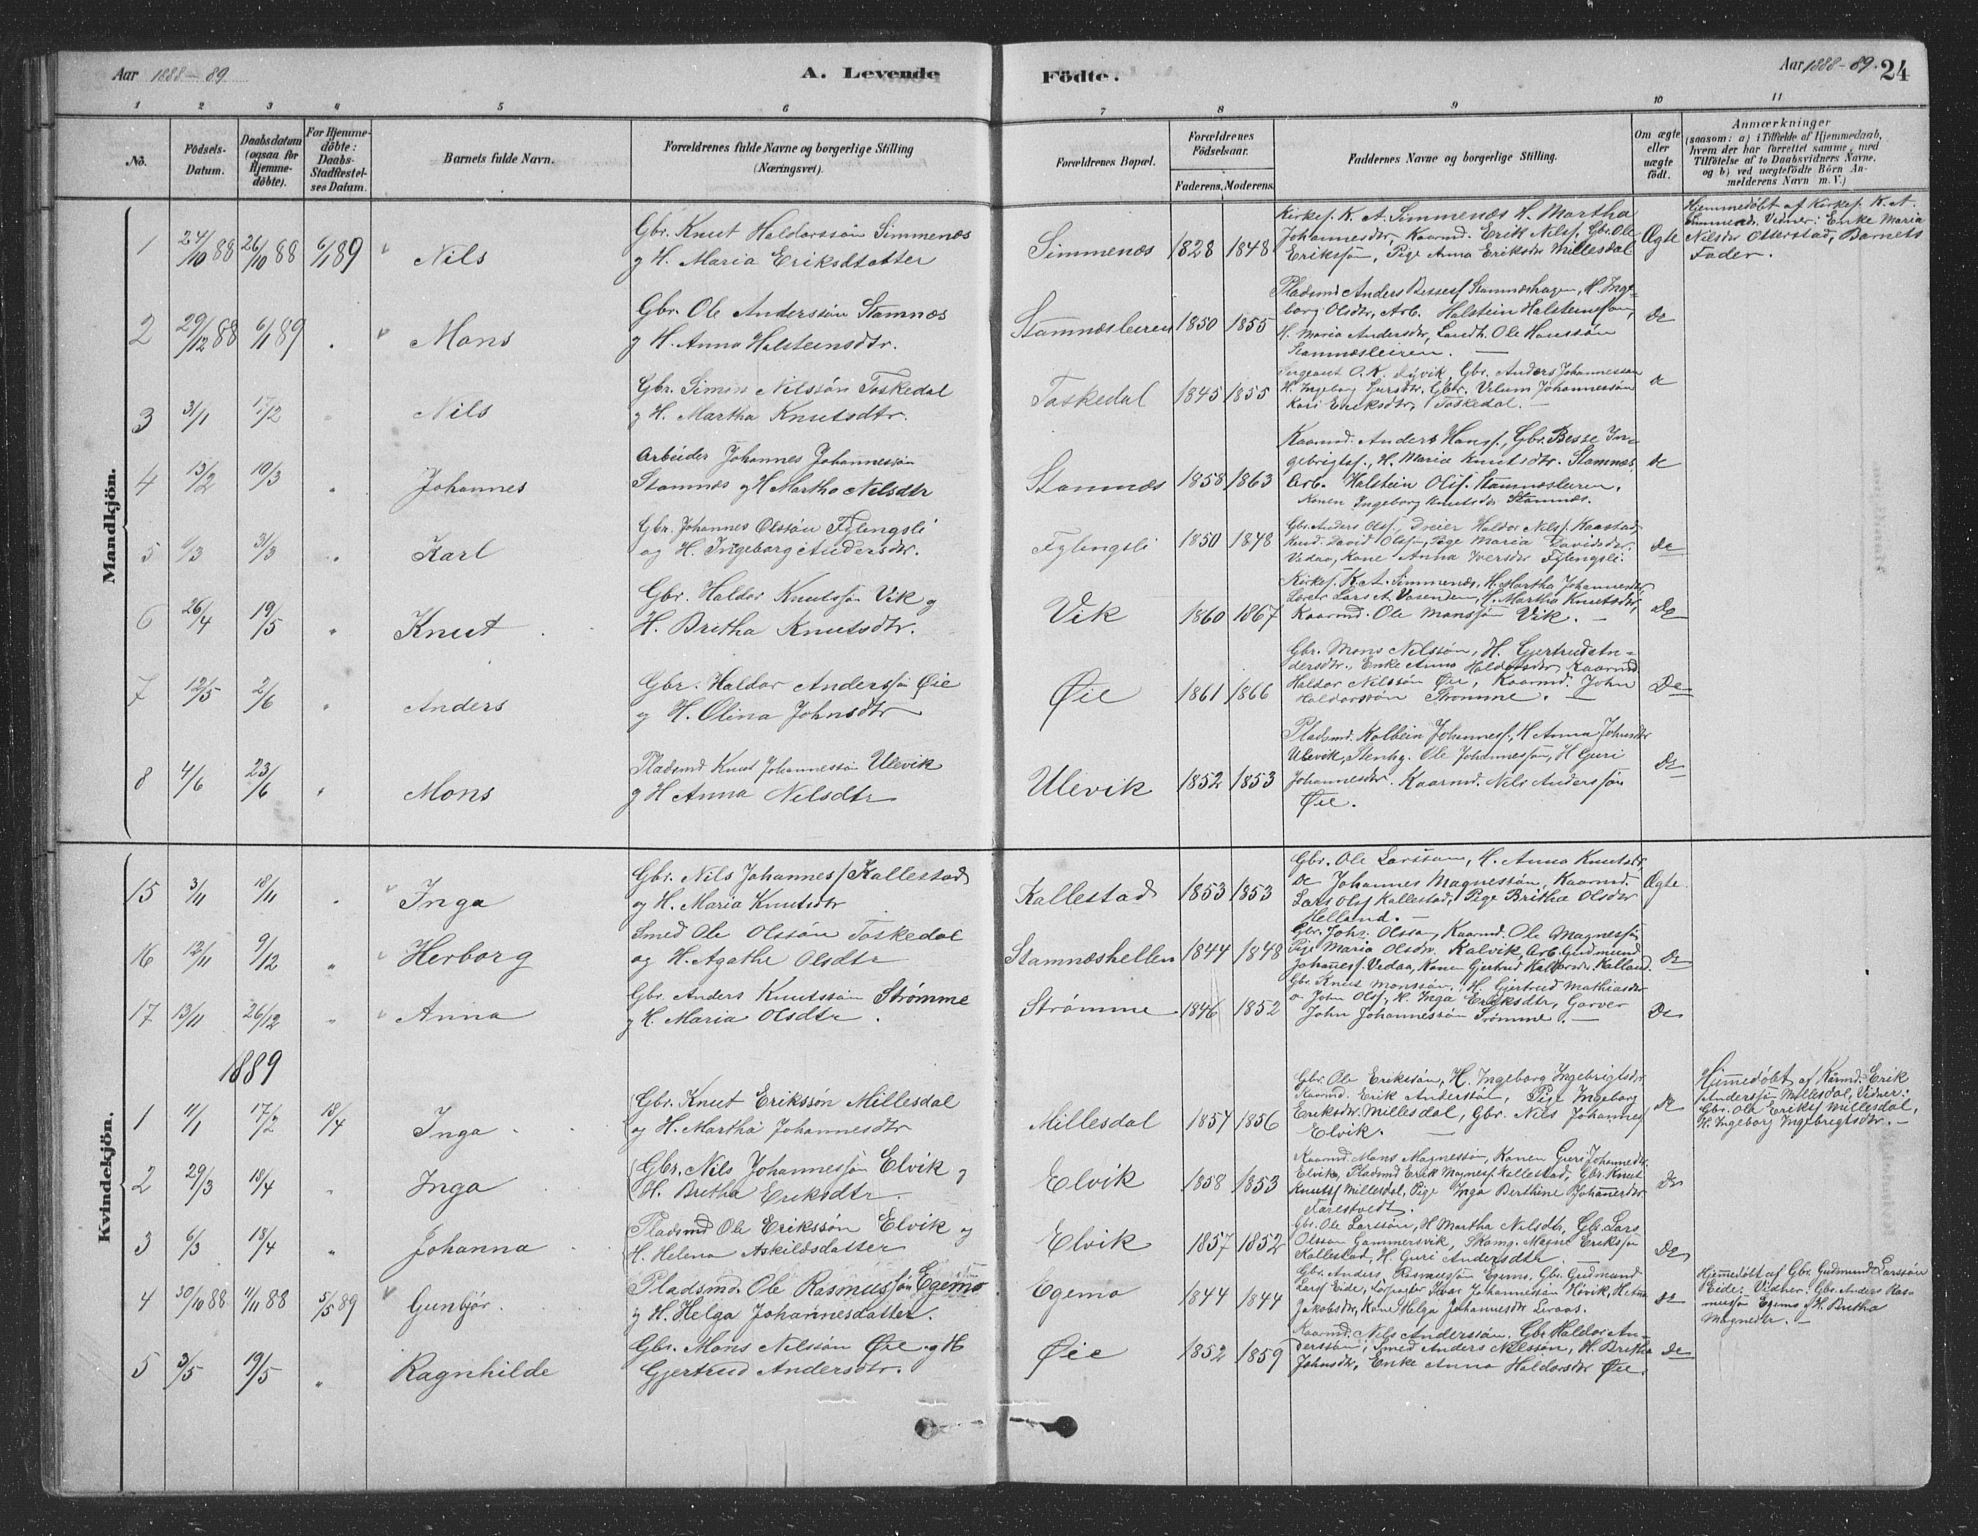 Aar 1888-89
A. Levende
Födte.
Aar 1888-89. 24
1 2 3 4 5 6 7 8 9 10 11
No.
Födsels-Datum.
Daabsdatum (ogsaa for Hjemmedöbte).
For Hjemmedöbte: Daabs-Stadfæstelses Datum.
Barnets fulde Navn.
Forældrenes fulde Navne og borgerlige Stilling (Næringsvei).
Forældrenes Bopæl.
Forældrenes Födselsaar.
Faderens. Moderens.
Faddernes Navne og borgerlige Stilling.
Om ægte eller uægte födt.
Anmærkninger
(saasom: a) i Tilfælde af Hjemmedaab,
hvem der har forrettet samme, med
Tilföielse af to Daabsvidners Navne,
og b) ved uægtefödte Börn Anmelderens Navn m. V.)
Mandkjön.
1 24/10 88 26/10 88 6/1 89 Nils
Gbr. Knut Haldorssön Simmenæs
og H. Maria Eriksdtatter
Simmenæs 1828 1848
Kirkes. K. A. Simmenæs H. Martha
Johannesdtr, Kaarmd. Erik Nilss, Gbr. Ole
Erikssön, Pige Anna Eriksdtr Millesdal
Ægte
Hjemmedöbt af Kirkes. K. A.
Simmenæs. Vidner: Enke Maria
Nilsdtr Otterstad, Barnets
Fader.
2 29/12 88 6/1 89 Mons
Gbr. Ole Anderssön Stamnæs
og H. Anna Halsteinsdtr.
Stamnæsleeren 1850 1855
Pladsmd Anders Besses. Stamnæshagen, H. Inge-
borg Olsdtr, Arb. Halstein Halsteinssön,
H. Maria Andersdtr, Landh. Ole Hanssön
Stamnæsleeren.
de
3 31/1 17/2 Nils
Gbr. Simon Nilssön Toskedal
og H. Martha Knutsdtr.
Toskedal 1845 1855
Sergeant O. K. Dyvik, Gbr. Anders Johannessön
H. Ingeborg Sjursdtr, Gbr. Vilum Johannessön
Kari Eriksdtr, Toskedal.
de
4 13/2 10/3 Johannes
Arbeider Johannes Johannessön
Stamnæs og H Martha Nilsdtr
Stamnæs 1858 1863
Kaarmd. Anders Hans., Gbr. Besse In-
gebrigts., H. Maria Knutsdtr. Stamnæs,
Arb. Halstein Olss. Stamnæsleeren,
Konen Ingeborg Knutsdtr Stamnæs.
de
5 6/3 31/3 Karl
Gbr. Johannes Olssön Fylingsli
og H. Ingeborg Andersdtr.
Fylingsli 1850 1848
Gbr. Anders Ols., Dreier Haldor Nilss. Kaastad,
David Olssön, Pige Maria Davidsdtr.
Vedaa, Kone Anna Iversdtr Fylingsli.
de
6 26/4 19/5 Knut
Gbr. Haldor Knutssön Vik og
H. Britha Knutsdtr.
Vik 1860 1867
Kirkes. K. A. Simmenæs, H. Martha Johannesdtr,
Lærer Lars A. Vasenden, H. Martha Knutsdtr,
Kaarmd. Ole Monssön Vik.
de
7 12/5 2/6 Anders
Gbr. Haldor Anderssön Øie
og H. Olina Johnsdtr
Øie 1861 1866
Gbr. Mons Nilssön, H. Gjertrud An-
dersdtr., Enke Anna Haldorsdtr, Kaarmd
Haldor Nilssön Øie, Kaarmd. John
Haldorssön Strømme.
De
8 4/6 23/6 Mons
Pladsmd Knut Johannessön Ulevik
og H Anna Nilsdtr
Ulevik 1852 1853
Pladsmd. Kolbein Johannes., H Anna Johnsdtr
Ulevik, Stenhg. Ole Johannessön, H Guri
Johannesdtr. Kaarmd. Nils Anderssön
Øie.
de
Kvindekjön.
15 3/11 18/11 Inga
Gbr. Nils Johannes. Kallestad
og H. Maria Knutsdtr
Kallestad 1853 1853
Gbr. Ole Larsson, H. Anna Knutsdtr,
De Johannes Magnessön, Kaarmd.
Lars Ols Kallestad, Pige Britha Olsdtr
Helland.
Ægte
16 12/11 9/12 Herborg
Smed Ole Olssön Toskedal
og H. Agathe Olsdtr
Stamnæshellen 1844 1848
Gbr. Johs. Olsson, Kaarmd. Ole Magnessön
Pige Maria Olsdtr. Kalvik, Arb. Gudmund
Johannes. Vedaa, Konen Gjertrud Kalland.
de
17 13/11 26/12 Anna
Gbr. Anders Knutssön Strømme
og H. Maria Olsdtr.
Strømme 1846 1852
Gbr. Knut Monssön, H. Gjertrud Mathiasdtr
o John Ols., H. Inga Eriksdtr, Garver
John Johannessön Strømme.
De
1889
1 11/1 17/2 13/4 Inga
Gbr. Knut Erikssön Millesdal
og H. Martha Johannesdtr
Millesdal 1857 1856
Gbr. Ole Erikssön, H. Ingeborg Ingebrigtsdtr
Kaarmd. Erik Anderssön, Pige Ingeborg
Eriksdtr. Millesdal, Gbr. Nils Johannes
Elvik.
de
Hjemmedöbt af Kårmd. Erik
Anderssön Millesdal, Vidner:
Gbr. Ole Eriks. Millesdal,
H. Ingeborg Ingebrigtsdtr.
2 29/3 18/4 Inga
Gbr. Nils Johannessön Elvik og
H. Britha Eriksdtr.
Elvik 1858 1853
Kaarmd. Mons Magnessön, Konen Guri Johannesdtr.
Elvik, Pladsmd Erik Magness. Kallestad, Gbr. Knut
Knuts. Millesdal, Pige Inga Berthine Johannesdtr
Farestvedt.
de
3 6/3 18/4 Johanna
Pladsmd Ole Erikssön Elvik og
H. Helena Askildsdatter
Elvik 1857 1852
Gbr. Ole Larssön, H Martha Nilsdtr, Gbr. Lars
Olsson Gammersvik, Skomg. Magne Erikssön
Kallestad, H Guri Andersdtr.
De
4 30/10 88 11/11 88 5/5 89 Gunbjør.
Pladsmd. Ole Rasmussön Egemo
og H. Helga Johannesdatter.
Egemo 1844 1844
Gbr. Anders Rasmussön Egemo, Gbr. Gudmund
Lars. Eide, Johannessön
Jakobsdtr, Kone Helga Johannesdtr
de
Hjemmedöbt af Gbr Gudmund Larssön
Eide. Vidner: Gbr. Anders Ras-
mussön Egemo, H. Britha
Magnedtr.
5 3/5 19/5 Ragnhilde
Gbr. Mons Nilssön Øie og H
Gjertrud Andersdtr.
Øie 1852 1859
Kaarmd. Nils Anderssön, Gbr. Haldor An-
derssön, Smed Anders Nilssön, H. Britha
Johnsdtr, Enke Anna Haldorsdtr Øie.
de